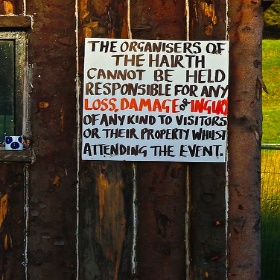 THE ORGANISERS OF
THE HAIRTH
CANNOT BE HELD
RESPONSIBLE FOR ANY
LOSS, DAMAGE &
OF ANY KIND TO VISITORS
OR THEIR PROPERTY WHILST
ATTENDING THE EVENT.